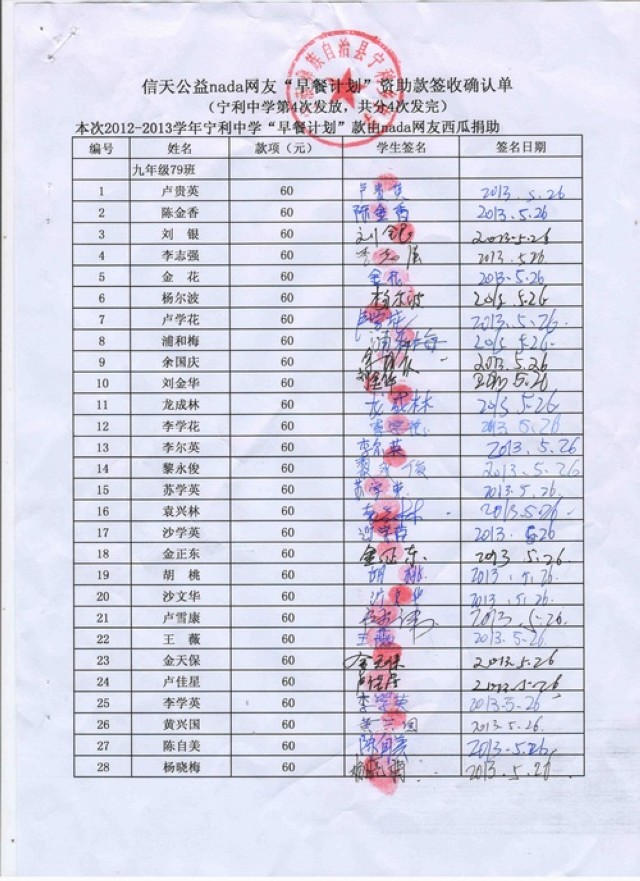 族自治县宁利
信天公益nada网友“早餐计划”资助款签收确认单
(宁利中学第4次发放，共分4次发完)
本次2012-2013学年宁利中学“早餐计划”款由nada网友西瓜捐助
编号 姓名 款项（元） 学生签名 签名日期
九年级79班
1 卢贵英 60 卢贵英 2013.5.26
2 陈金香 60 陈金香 2013.5.26
3 刘 银 60 刘银 2013.5.26
4 李志强 60 2013.5.26
5 金 花 60 金花 2013.5.26
6 杨尔波 60 杨尔波 2013.5.26
7 卢学花 60 卢学花 2013.5.26
8 浦和梅 60 浦和梅 2013.5.26
9 余国庆 60 余国庆 2013.5.26
10 刘金华 60 刘金华 2013.5.26
11 龙成林 60 龙成林 2013.5.26
12 李学花 60 李学花 2013.5.26
13 李尔英 60 李尔英 2013.5.26
14 黎永俊 60 黎永俊 2013.5.26
15 苏学英 60 苏学英 2013.5.26
16 袁兴林 60 袁兴林 2013.5.26
17 沙学英 60 沙学英 2013.5.26
18 金正东 60 金正东 2013.5.26
19 胡 桃 60 胡桃 2013.5.26
20 沙文华 60 沙文华 2013.5.26
21 卢雪康 60 2013.5.26
22 王 薇 60 王薇 2013.5.26
23 金天保 60 金天保 2013.5.26
24 卢佳星 60 卢佳星 2013.5.26
25 李学英 60 李学英 2013.5.26
26 黄兴国 60 黄兴国 2013.5.26
27 陈自美 60 陈自美 2013.5.26
28 杨晓梅 60 杨晓梅 2013.5.26